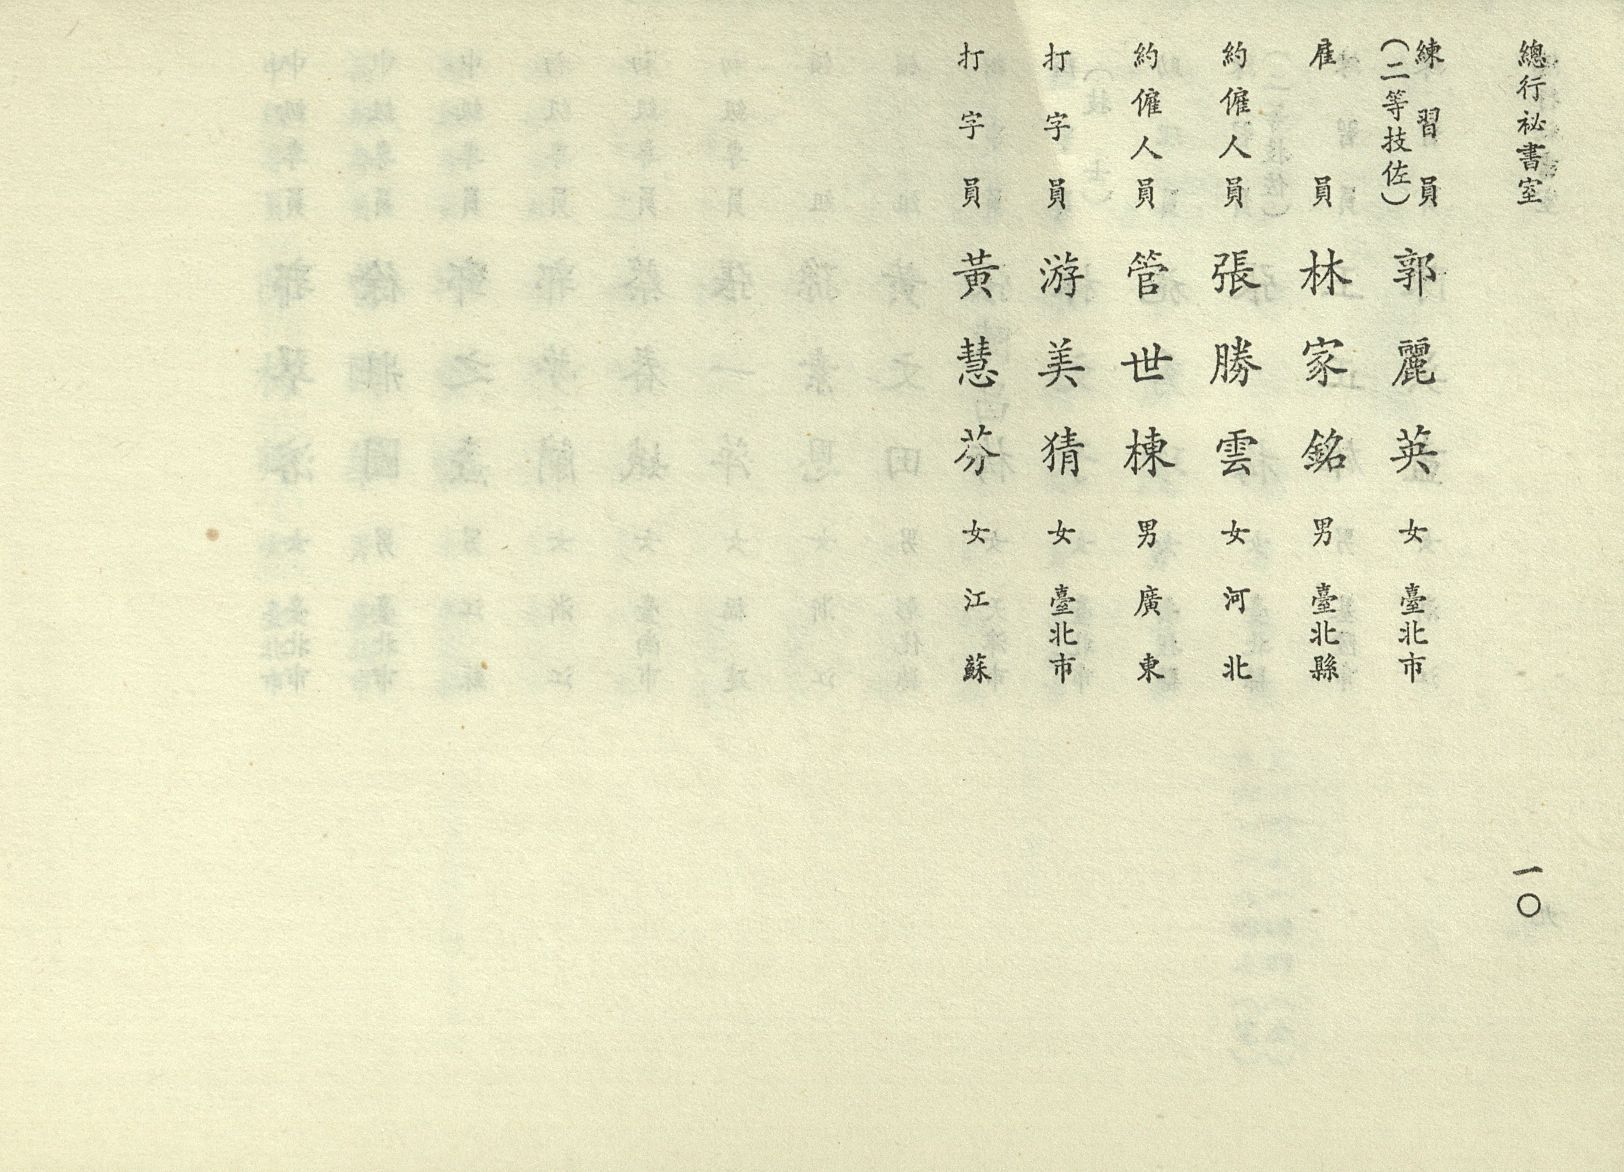 總行祕書室
一〇
練習員（二等技佐） 郭麗英 女 臺北市
雇員 林家銘 男 臺北縣
約僱人員 張勝雲 女 河北
約僱人員 管世棟 男 廣東
打字員 游美猜 女 臺北市
打字員 黃慧芬 女 江蘇